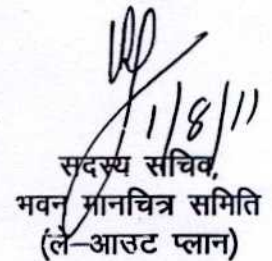 1/8/11
सदस्य सचिव,
भवन मानचित्र समिति
(ले-आउट प्लान)